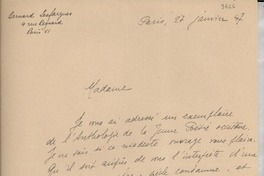 Bernard Lesfargues
Paris VI
3626
Paris, 27 janvier 47
Madame
Je vous ai adressé un exemplaire
de l'Anthologie de la Jeune Poésie occitane.
Je ne sais si ce modeste ouvrage vous plaira.
Qu'il soit auprès de vous l'interprète d'une
et